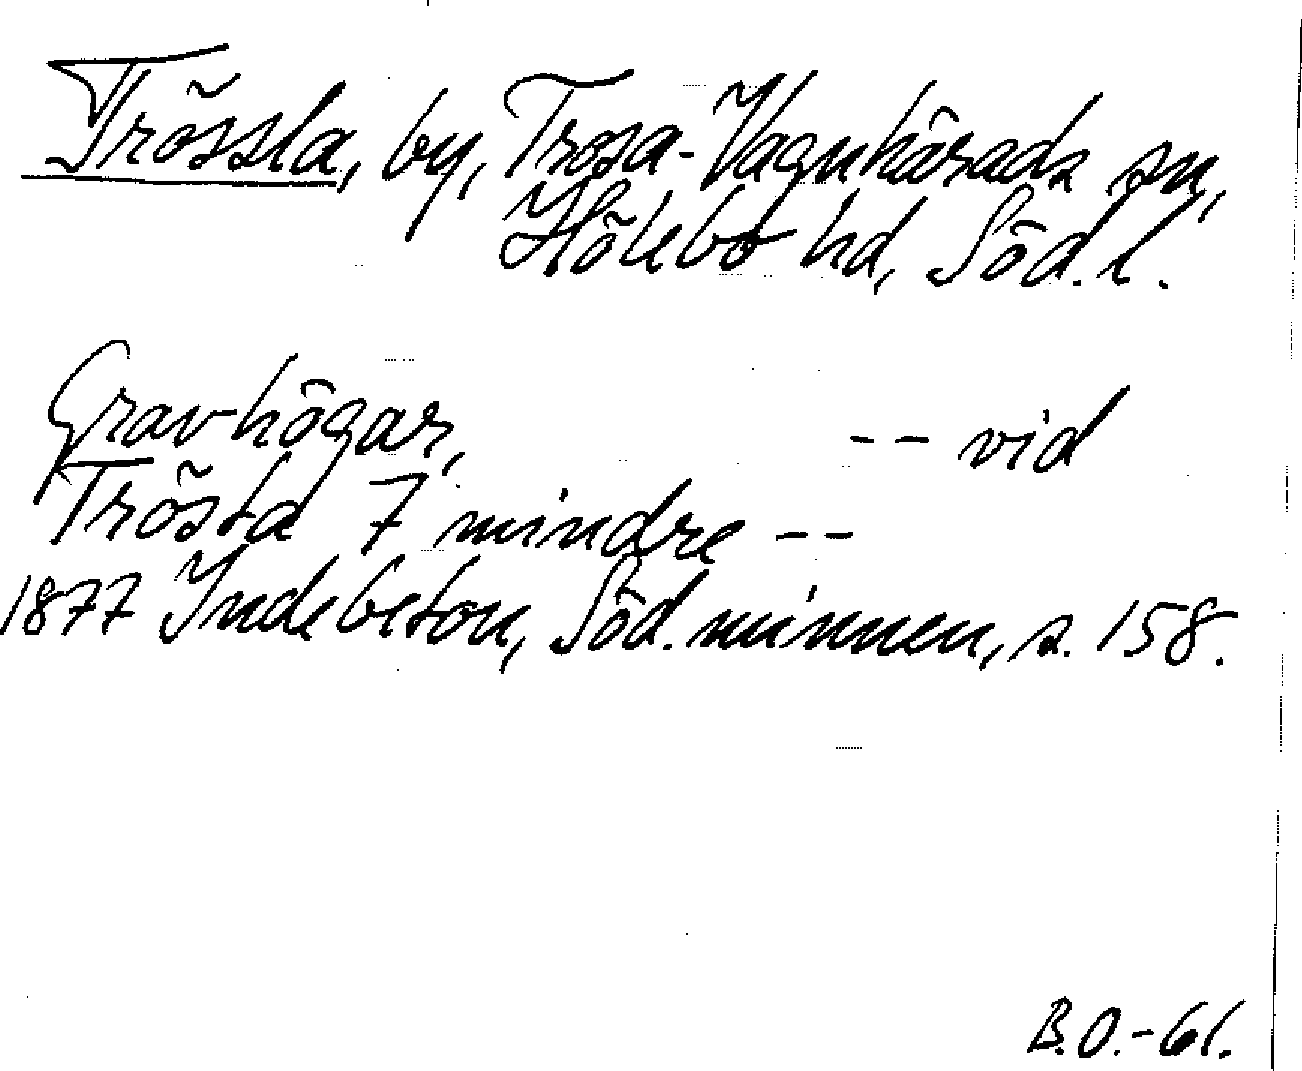 Trõssla, by, Trosa-Vagnhärads sn,
Hölebo hd, Söd. l.
Gravhögar, -- vid
Trõsta 7 mindre --
1877 Indebetou, Söd. minnen, s. 158.
B.O.-61.